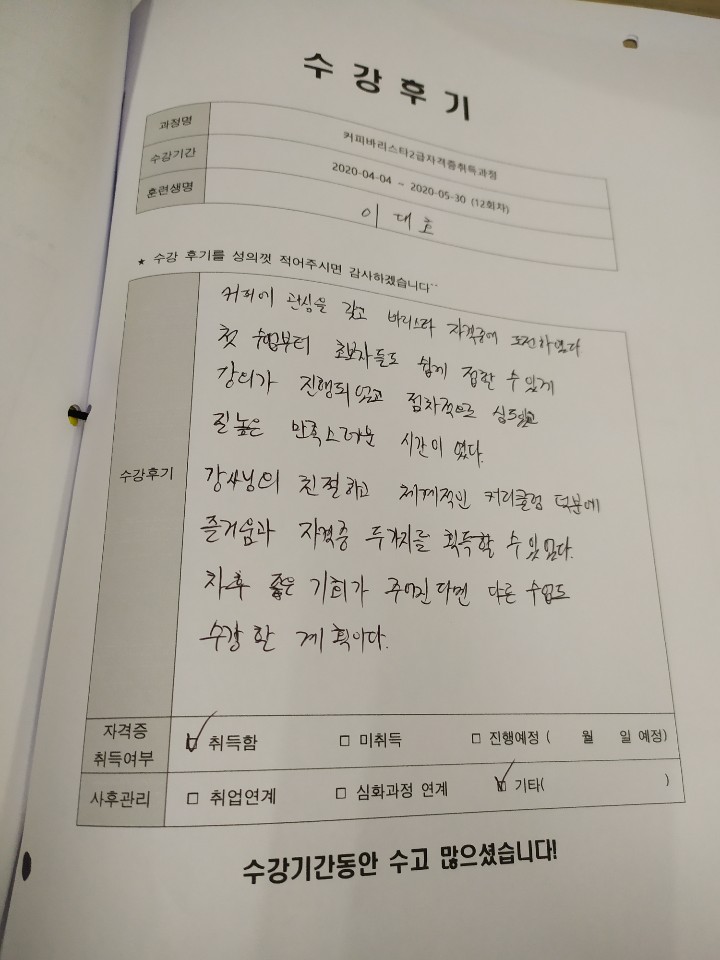 수 강 후 기
과정명 커피바리스타2급자격증취득과정
수강기간 2020-04-04 ~ 2020-05-30 (12회차)
훈련생명 이 대 호
★ 수강 후기를 성의껏 적어주시면 감사하겠습니다^^
커피에 관심을 갖고 바리스타 자격증에 도전하였다
첫 수업부터 초보자들도 쉽게 접할 수 있게
강의가 진행되었고 점차적으로 심도있고
질높은 만족스러운 시간이 였다.
수강후기
강사님의 친절하고 체계적인 커리큘럼 덕분에
즐거움과 자격증 두가지를 획득할 수 있었다.
차후 좋은 기회가 주어진다면 다른 수업도
수강 할 계획이다.
자격증 취득여부 ☑ 취득함 □ 미취득 □ 진행예정 ( 월 일 예정)
사후관리 □ 취업연계 □ 심화과정 연계 ☑ 기타( )
수강기간동안 수고 많으셨습니다!